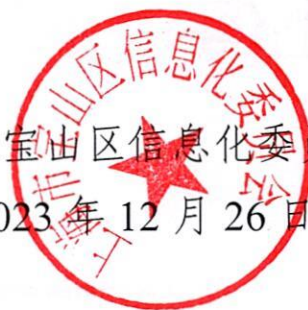 上海市宝山区信息化委员会
宝山区信息化委
023年12月26日